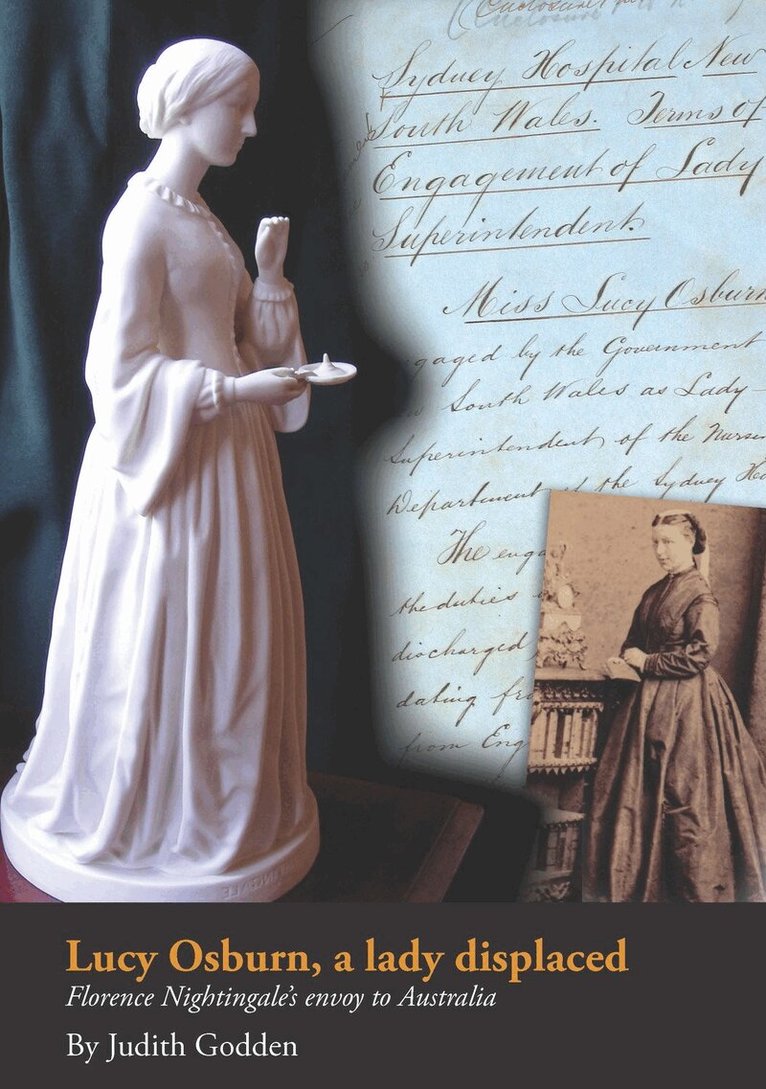 Sydney Hospital New
South Wales. Terms of
Engagement of Lady
Superintendent.
Miss Lucy Osburn
gaged by the Government
South Wales as Lady-
Superintendent of the
Department the Sydney
The enga
the duties
discharged
dating fro
from Eng
Lucy Osburn, a lady displaced
Florence Nightingale's envoy to Australia
By Judith Godden